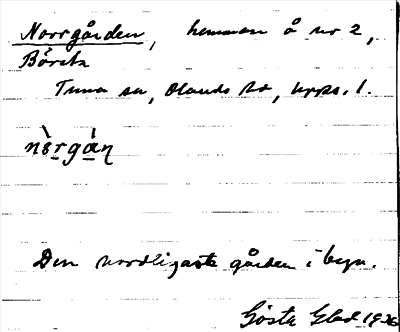 Norrgården, hemman å nr 2,
Börsta
Tuna sn, Olands hd, Upps. l.
nèrgán
Den nordligaste gården i byn.
Gösta Eld 19